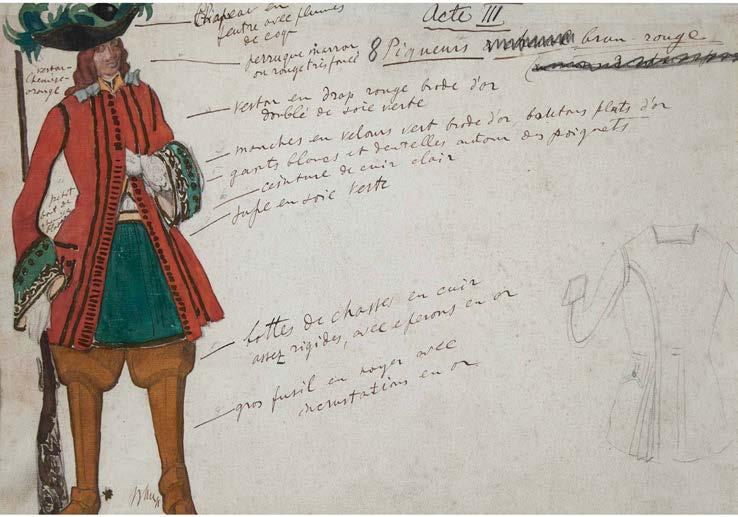 Acte III
Chapeau en
feutre avec plumes
de coq
perruque marron
ou rouge très foncé
8 Piqueurs brun-rouge
veston en drap rouge brodé d'or
doublé de soie verte
manches en velours vert brodé d'or boutons plats d'or
gants blancs et dentelles autour des poignets
ceinture de cuir clair
jupe en soie verte
bottes de chasses en cuir
assez rigides, avec éperons en or
gros fusil en noyer avec
incrustations en or
veston-
chemise-
orange
petit
bout de